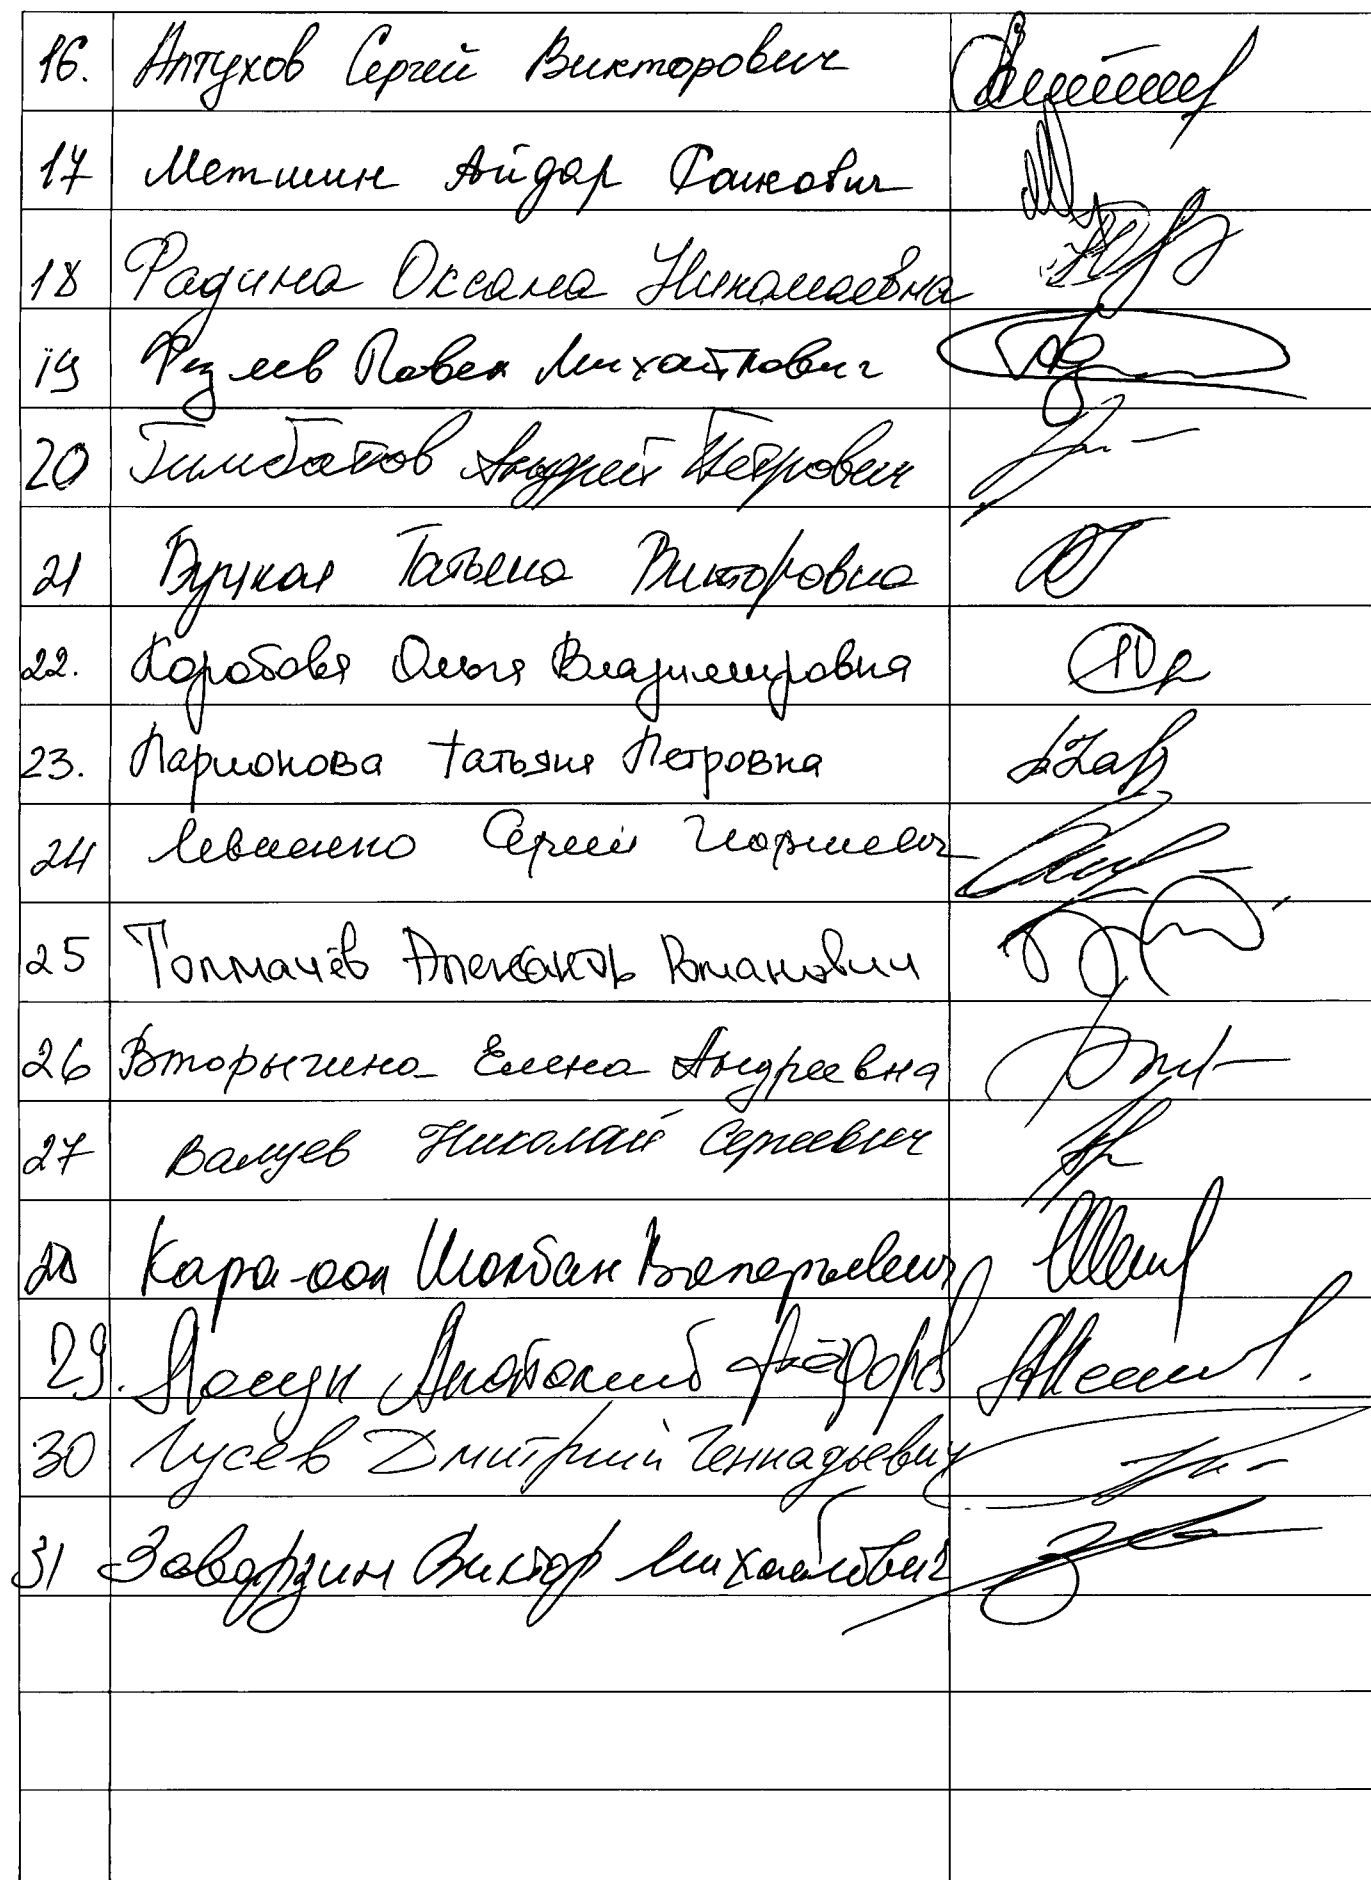 16. Алтухов Сергей Викторович
17 Метшин Айдар Раисович
18 Фадина Оксана Николаевна
19 Павел Михайлович
20 Гимбатов Андрей Петрович
21 Буцкая Татьяна Викторовна
22. Коробова Ольга Владимировна
23. Ларионова Татьяна Петровна
24 Левченко Сергей Георгиевич
25 Толмачёв Александр Романович
26 Вторыгина Елена Андреевна
27 Валуев Николай Сергеевич
28 Кара-оол Шолбан Валерьевич
29. Лисицын Анатолий
30 Гусев Дмитрий Геннадьевич
31 Заварзин Виктор Михайлович